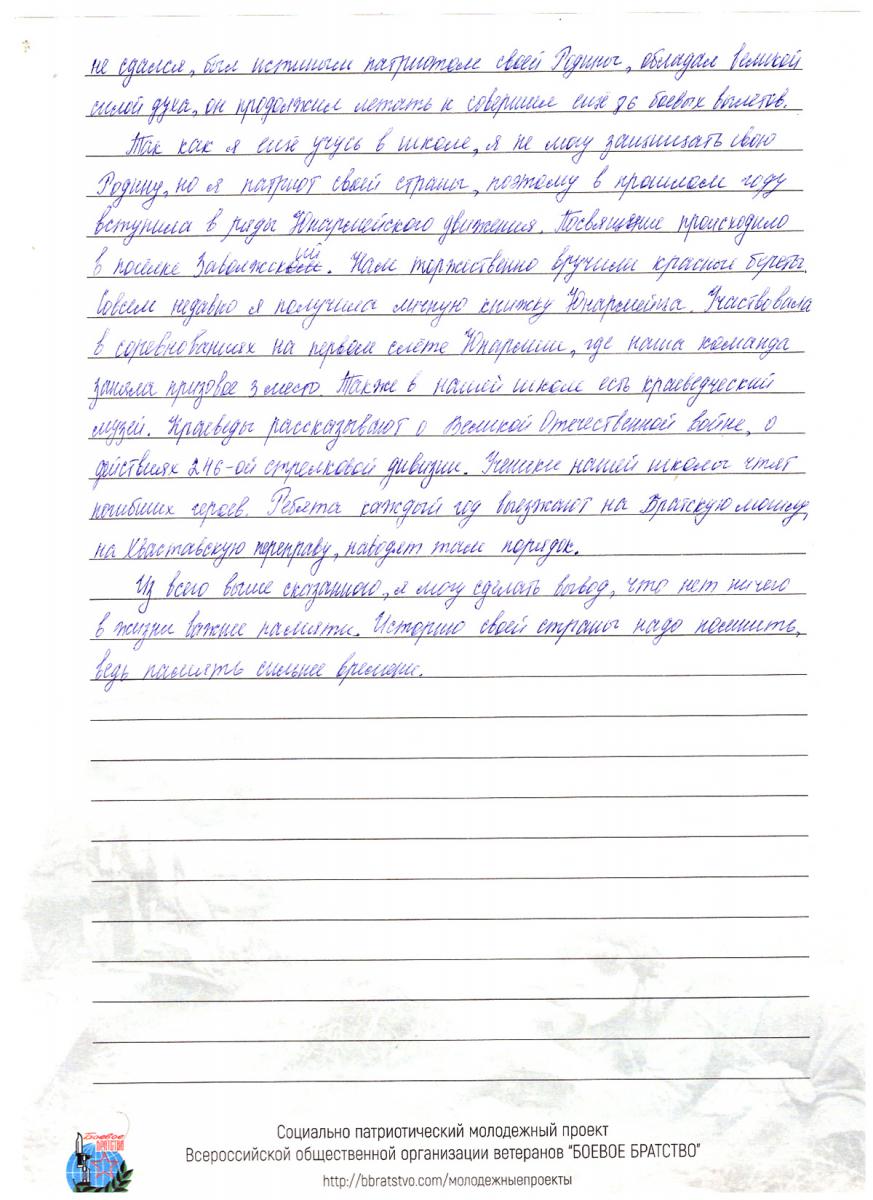 не сдался, был истиным патриотом своей Родины, обладал великой
силой духа, он продолжил летать и совершил ещё 86 боевых вылетов.
Так как я ещё учусь в школе, я не могу защищать свою
Родину, но я патриот своей страны, поэтому в прошлом году
вступила в ряды Юнармейского движения. Посвящение происходило
в посёлке Заволжский. Нам торжественно вручили красные береты.
Совсем недавно я получила личную книжку Юнармейца. Участвовала
в соревнованиях на первом слёте Юнармии, где наша команда
заняла призовое 3 место. Также в нашей школе есть краеведческий
музей. Краеведы рассказывают о Великой Отечественной войне, о
действиях 246-ой стрелковой дивизии. Ученики нашей школы чтят
погибших героев. Ребята каждый год выезжают на Братскую могилу,
на Хваставскую переправу, наводят там порядок.
Из всего выше сказанного, я могу сделать вывод, что нет ничего
в жизни важнее памяти. Историю своей страны надо помнить,
ведь память сильнее времени.
Боевое
БРАТСТВО
Социально патриотический молодежный проект
Всероссийской общественной организации ветеранов "БОЕВОЕ БРАТСТВО"
http://bbratstvo.com/молодежныепроекты